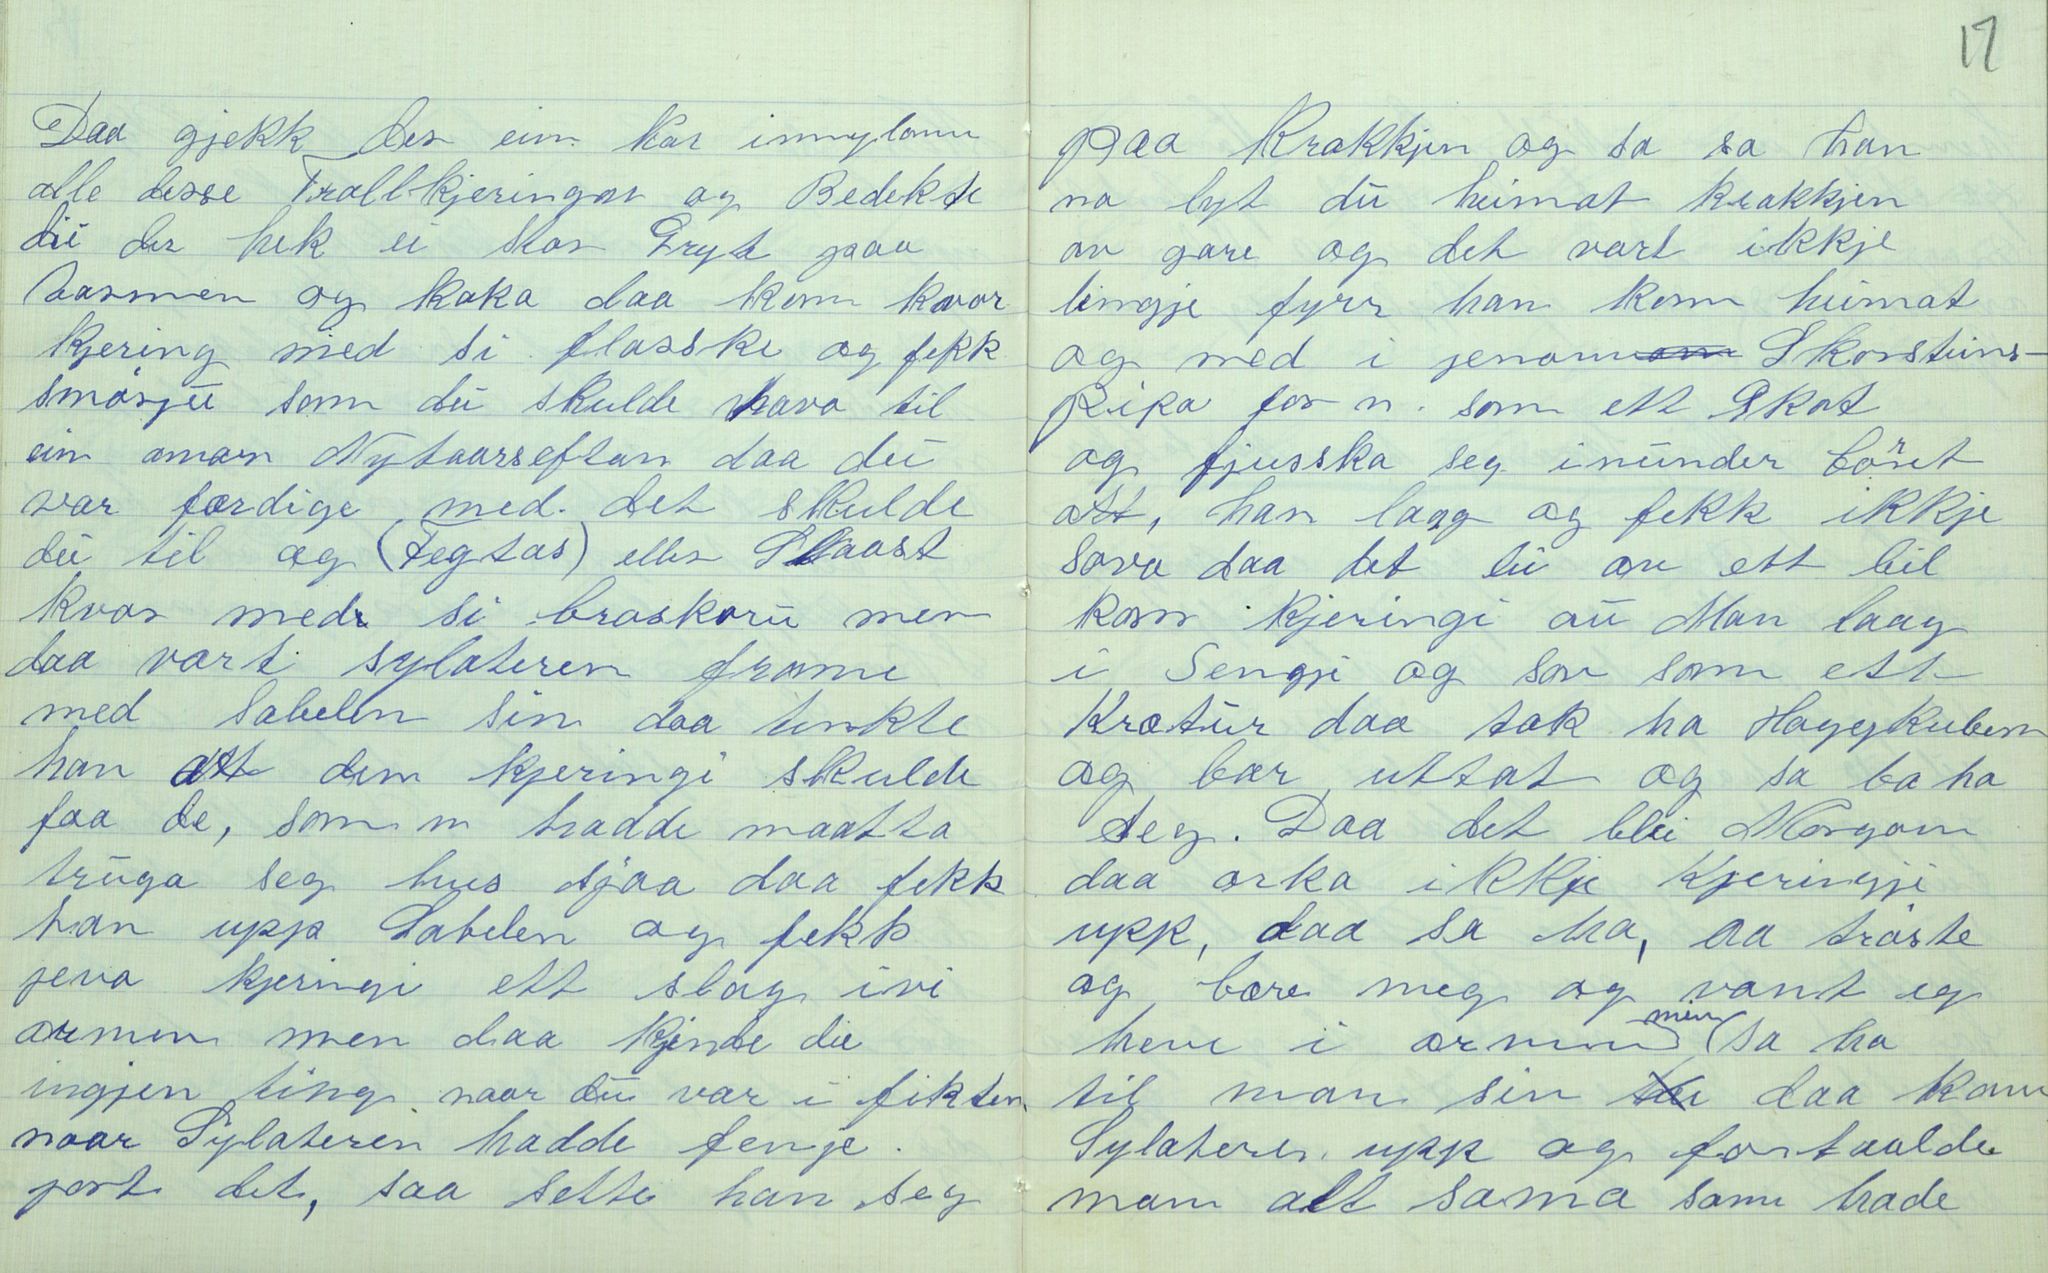 Daa gjekk der ein Kar innylom
alle desse Trollkjeringar og Bedekte
dü der hek ei stor Gryt paa
Varmen og koka daa kom kvar
kjering med si flosske og fekk
smörjü som dü skulde hava til
ein anarn Nytaarseftan daa dü
var færdige med det skulde
dü til og (Fegtas) eller Slaast
kvar med si braskorü men
daa vart sylateren frame
med sabelen sin daa tenkte
han att dem kjeringi skulde
faa de, som n hadde maatta
trüga seg hus sjaa daa fekk
han upp Sabelen og fekk
jeva kjeringi ett slag ivi
armen men daa kjende die
ingjen ting naar dü var i fikten
naar Sylateren hadde fenje
jort det, saa sette han seg
17
paa Krakkjen og sa sa han
no lyt dü heimat krakkjen
av gare og det vart ikkje
lengje fyrr han kom heimat
og med i jenom Skorsteins-
Pipa for n. som ett Skot
og fjusska seg inünder böret
att, han laag og fekk ikkje
sova daa det lei au ett bil
kom kjeringi aü Man laag
i Sengji og sov som ett
Krætür daa tok ha Haggkubem
og bar uttat og sa ba ha
seg. Daa det blei Morgon
daa orka ikkje Kjeringji
upp, daa sa ha, aa tröste
og bære meg og vont eg
heve i armen min (sa ha
til man sin daa kom
Sylateren upp og fortaalde
mam alt sama som hade